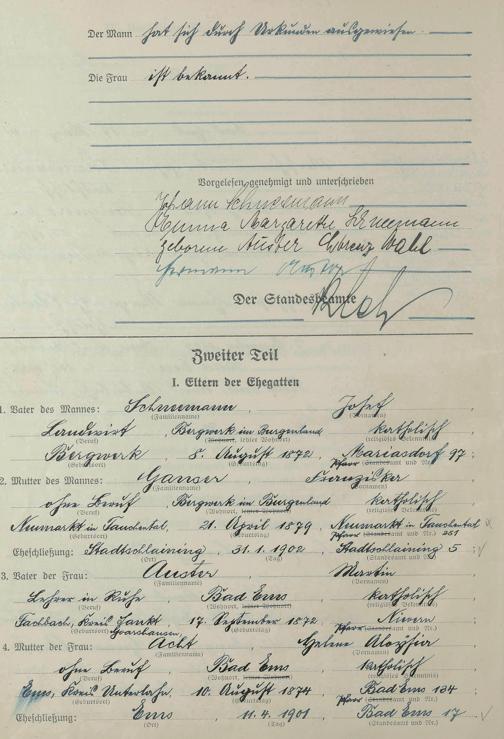 Der Mann hat sich durch Urkunden ausgewiesen.
Die Frau ist bekannt.
Vorgelesen, genehmigt und unterschrieben
Johann Schneemann
Emma Margarethe Schneemann
geborene Auster Lorenz Wahl
Hermann
Der Standesbeamte
Zweiter Teil
I. Eltern der Ehegatten
1. Vater des Mannes: Schneemann Josef
(Familienname) (Vornamen)
Landwirt Bergwerk im Burgenland katholisch
(Beruf) (Wohnort, letzter Wohnort) (religiöses Bekenntnis)
Bergwerk 8. August 1872 Mariasdorf 97
(Geburtsort) (Geburtstag) Pfarr (Standesamt und Nr.)
2. Mutter des Mannes: Ganser Franziska
(Familienname) (Vornamen)
ohne Beruf Bergwerk im Burgenland katholisch
(Beruf) (Wohnort, letzter Wohnort) (religiöses Bekenntnis)
Neumarkt in Tauchental 21. April 1879 Neumarkt in Tauchental
(Geburtsort) (Geburtstag) Pfarr (Standesamt und Nr.) 251
Eheschließung: Stadtschlaining 31.1.1902 Stadtschlaining 5
(Ort) (Tag) Pfarr (Standesamt und Nr.)
3. Vater der Frau: Auster Martin
(Familienname) (Vornamen)
Lehrer in Ruhe Bad Ems katholisch
(Beruf) (Wohnort, letzter Wohnort) (religiöses Bekenntnis)
Fachbach, Kreis Sankt 17. September 1872 Nievern
(Geburtsort) Goarshausen (Geburtstag) Pfarr (Standesamt und Nr.)
4. Mutter der Frau: Acht Helene Aloysia
(Familienname) (Vornamen)
ohne Beruf Bad Ems katholisch
(Beruf) (Wohnort, letzter Wohnort) (religiöses Bekenntnis)
Ems, Kreis Unterlahn 10. August 1874 Bad Ems 134
(Geburtsort) (Geburtstag) Pfarr (Standesamt und Nr.)
Eheschließung: Ems 11.4.1901 Bad Ems 17
(Ort) (Tag) (Standesamt und Nr.)